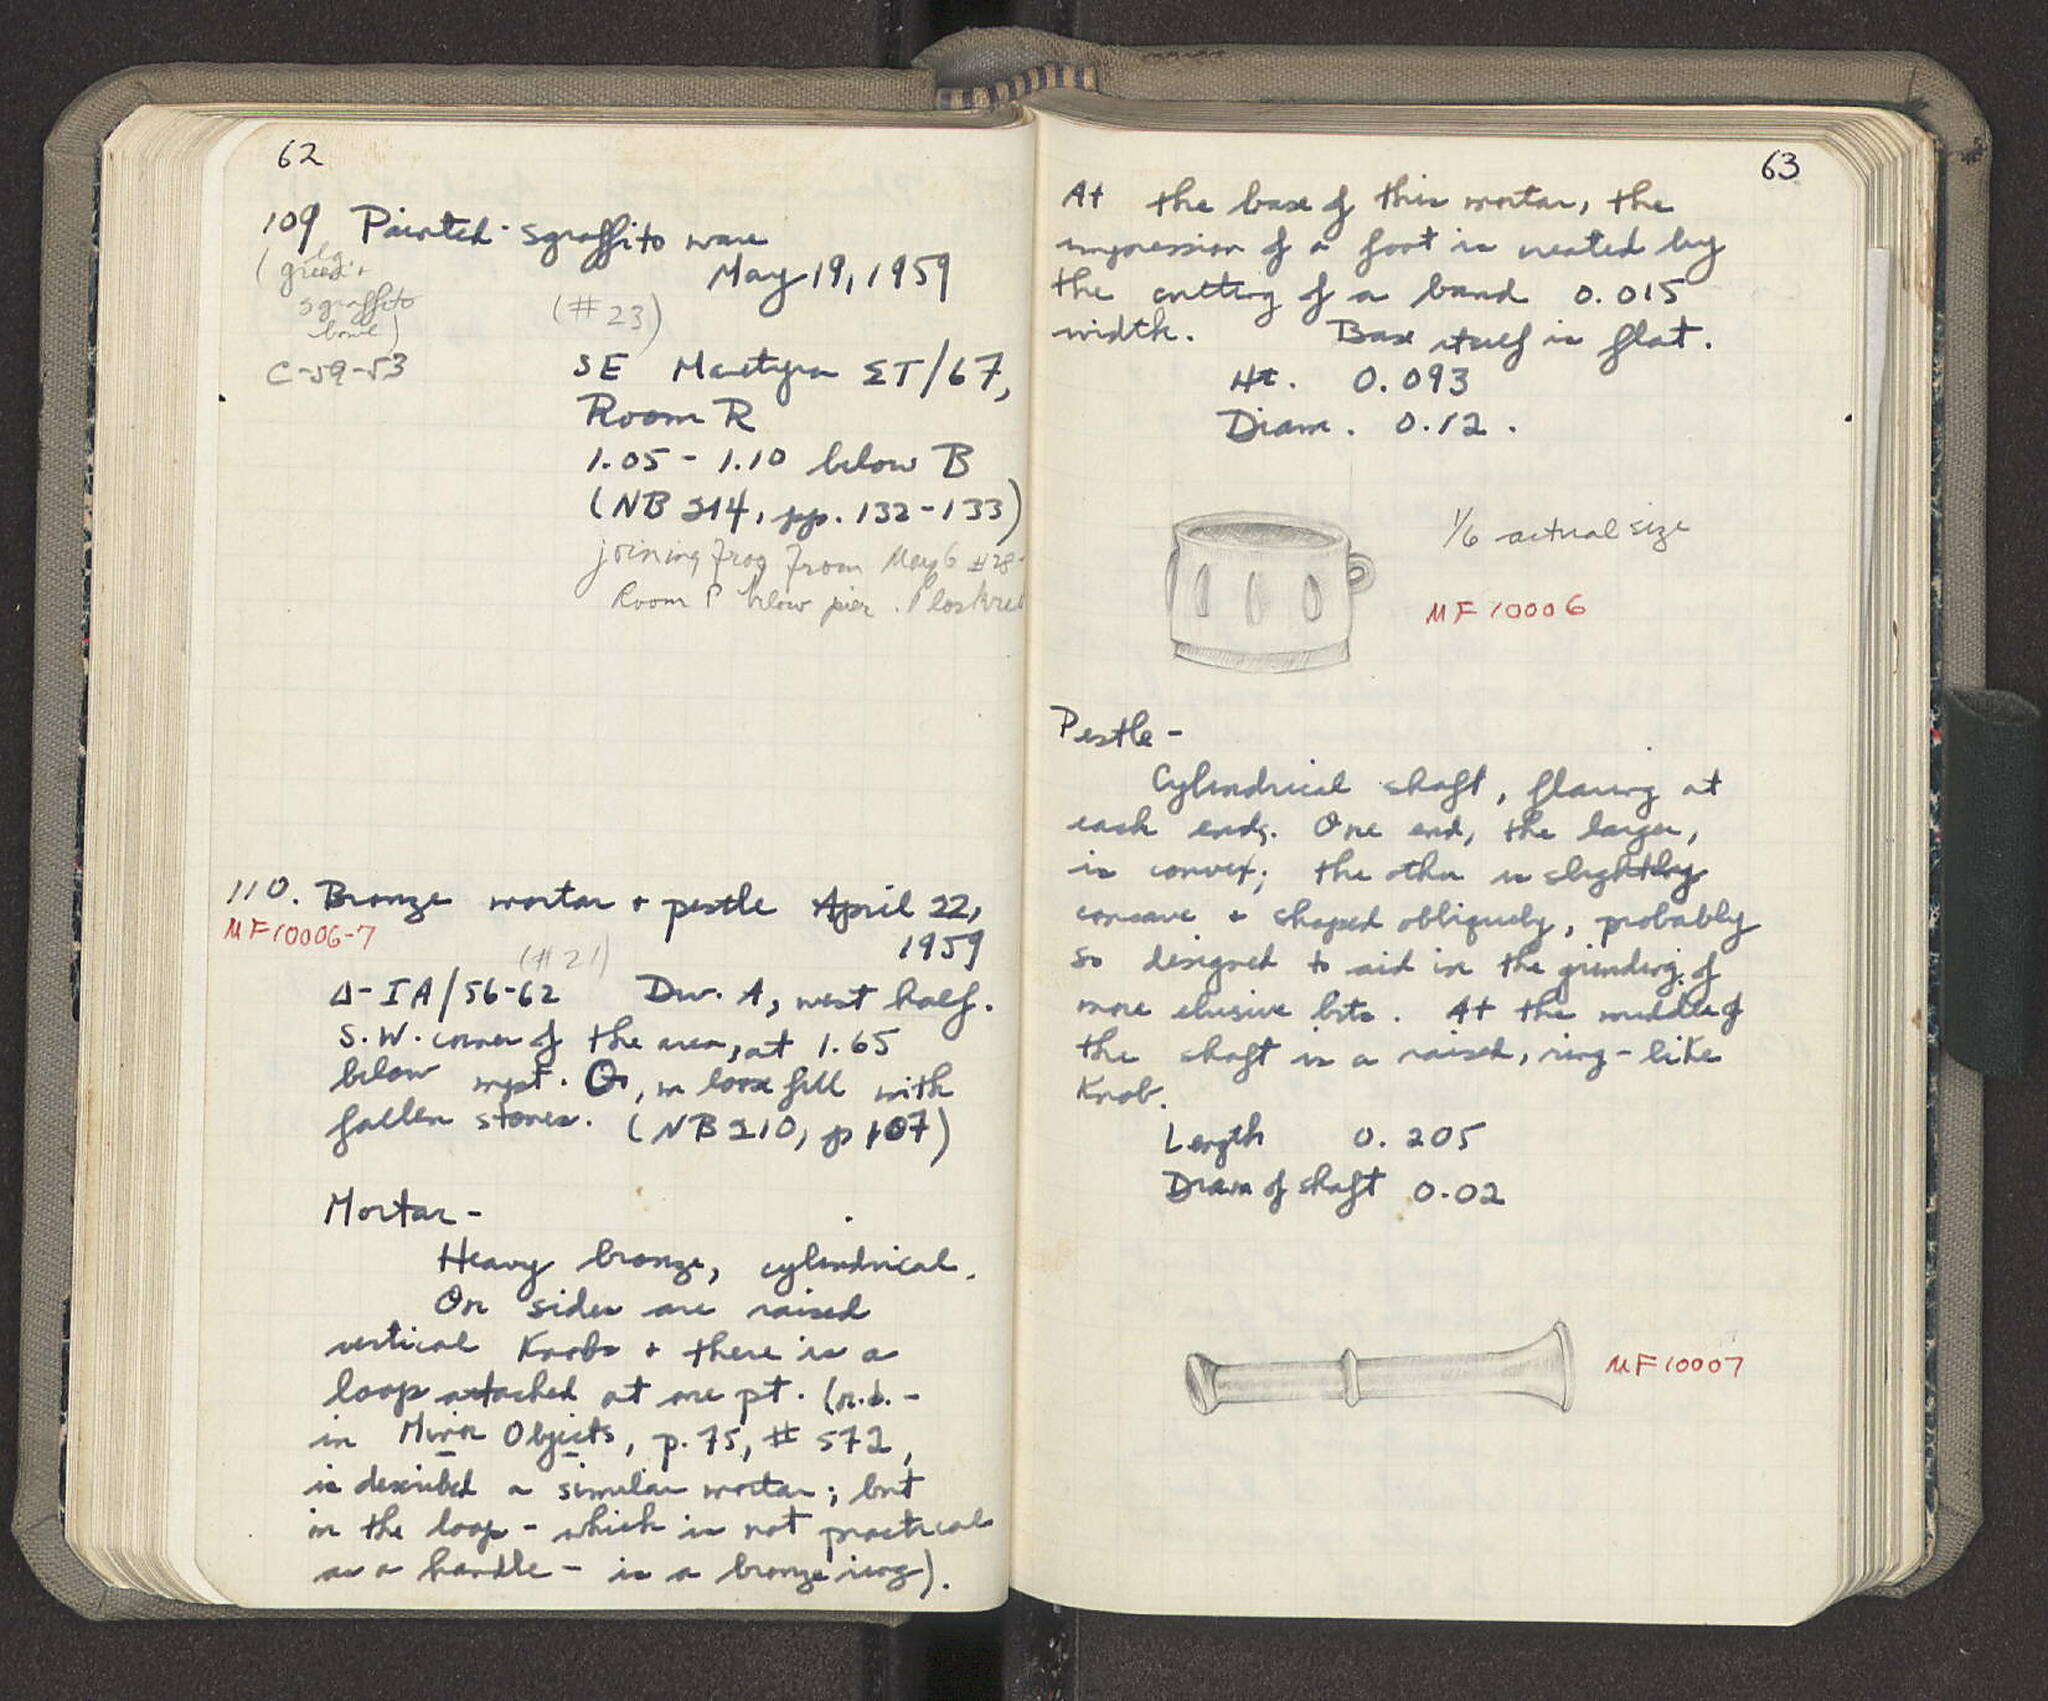 62
109 Painted-sgraffito ware
May 19, 1959
(lg.
green +
sgraffito
bowl)
(#23)
C-59-53
SE Martyrion ΣΤ/67,
Room R
1.05 - 1.10 below B
(NB 214, pp. 132-133)
joining frag from May 6 #28-
Room P below pier.
110. Bronze mortar + pestle April 22,
1959
MF10006-7
(#21)
Δ-IA/56-62 Div. A, west half.
S.W. corner of the area, at 1.65
below mpt. Θ, in loose fill with
fallen stones. (NB 210, p 107)
Mortar -
Heavy bronze, cylindrical.
On sides are raised
vertical Knobs + there is a
loop attached at one pt. (n.b. -
in Minor Objects, p. 75, # 572,
is described a similar mortar; but
in the loop - which is not practical
as a handle - is a bronze ring).
63
At the base of this mortar, the
impression of a foot is created by
the cutting of a band 0.015
width. Base itself is flat.
Ht. 0.093
Diam. 0.12.
1/6 actual size
MF 10006
Pestle -
Cylindrical shaft, flaring at
each end. One end, the larger,
is convex; the other is slightly
concave + shaped obliquely, probably
so designed to aid in the grinding of
more elusive bits. At the middle of
the shaft is a raised, ring-like
Knob.
Length 0.205
Diam of shaft 0.02
MF10007